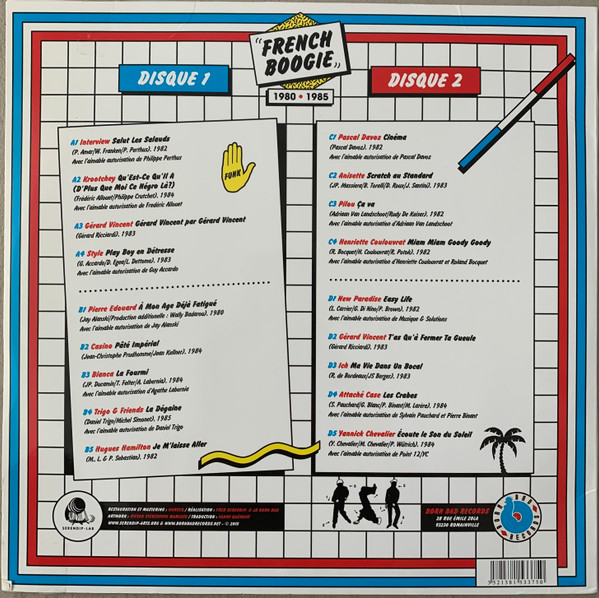 "FRENCH
BOOGIE"
1980 • 1985
DISQUE 1
A1 Interview Salut Les Salauds
(P. Amar/W. Franken/P. Perthus). 1982
Avec l'aimable autorisation de Philippe Perthus
A2 Krootchey Qu'Est-Ce Qu'Il A
(D'Plus Que Moi Ce Négro Là?)
(Frédéric Allouet/Philippe Crutchet). 1984
Avec l'aimable autorisation de Frédéric Allouet
A3 Gérard Vincent Gérard Vincent par Gérard Vincent
(Gérard Ricciardi). 1983
A4 Style Play Boy en Détresse
(G. Accardo/D. Egea/L. Dettome). 1983
Avec l'aimable autorisation de Guy Accardo
FUNK
B1 Pierre Edouard À Mon Age Déjà Fatigué
(Jay Alanski/Production additionelle : Wally Badarou). 1980
Avec l'aimable autorisation de Jay Alanski
B2 Casino Pâté Impérial
(Jean-Christophe Prudhomme/Joan Kaliner). 1984
B3 Bianca La Fourmi
(JP. Ducamin/T. Felter/A. Labornie). 1984
Avec l'aimable autorisation d'Agathe Labornie
B4 Trigo & Friends La Dégaine
(Daniel Trigo/Michel Simonet). 1985
Avec l'aimable autorisation de Daniel Trigo
B5 Hugues Hamilton Je M'laisse Aller
(M., L. & P. Sebastian). 1982
DISQUE 2
C1 Pascal Davoz Cinéma
(Pascal Davoz). 1982
Avec l'aimable autorisation de Pascal Davoz
C2 Anisette Scratch au Standard
(JP. Massiera/B. Torelli/D. Roux/J. Santini). 1983
C3 Pilou Ça va
(Adriaan Van Landschoot/Rudy De Kaiser). 1982
Avec l'aimable autorisation d'Adriaan Van Landschoot
C4 Henriette Coulouvrat Miam Miam Goody Goody
(R. Bocquet/H. Coulouvrat/R. Potok). 1982
Avec l'aimable autorisation d'Henriette Coulouvrat et Roland Bocquet
D1 New Paradise Easy Life
(L. Carrier/G. Di Nino/P. Brown). 1982
Avec l'aimable autorisation de Musique & Solutions
D2 Gérard Vincent T'as Qu'é Fermer Ta Gueule
(Gérard Ricciardi). 1983
D3 Ich Ma Vie Dans Un Bocal
(R. de Bordeaux/JS Borger). 1983
D4 Attaché Case Les Crabes
(S. Pauchard/G. Blanc/P. Binant/M. Larire). 1984
Avec l'aimable autorisation de Sylvain Pauchard et Pierre Binant
D5 Yannick Chevalier Écoute le Son du Soleil
(Y. Chevalier/M. Chevalier/P. Wilfrid). 1984
Avec l'aimable autorisation de Point 12/YC
SERENDIP-LAB
WWW.SERENDIP-ARTS.ORG & WWW.BORNBADRECORDS.NET - © 2015
BORN BAD RECORDS
28 RUE ÉMILE ZOLA
93230 ROMAINVILLE
BORN BAD
RECORDS
3 521381 533750